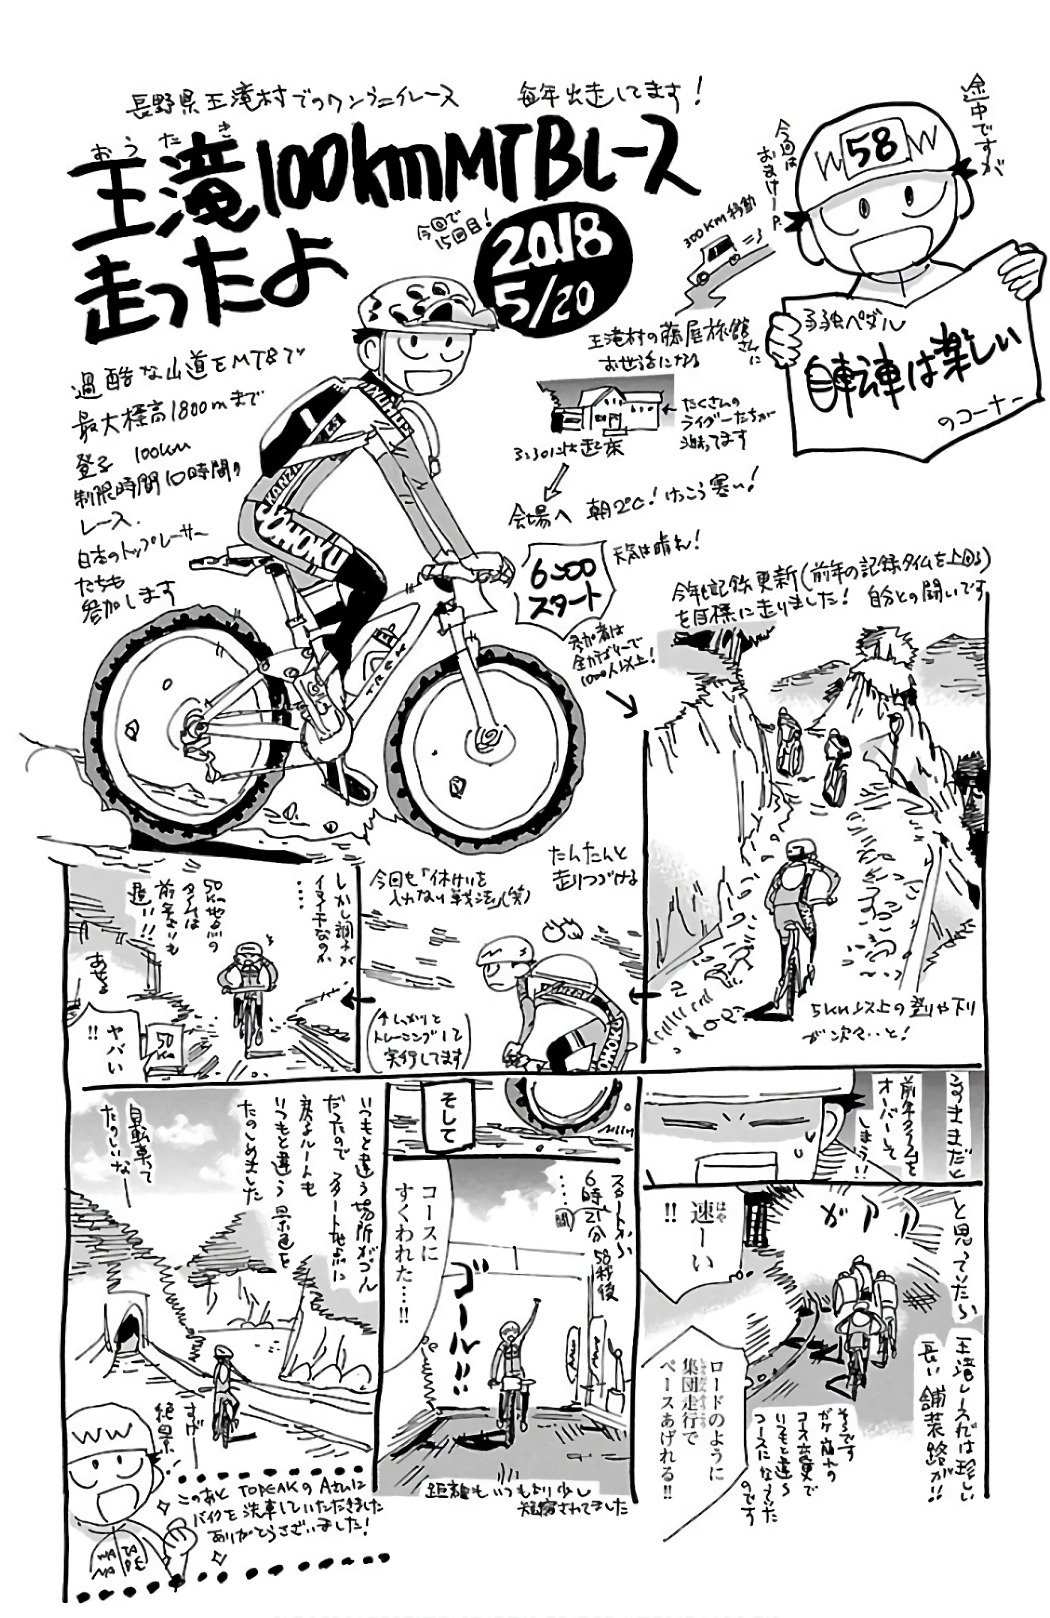 途中ですが
今回は
おまけーP.
W 58 W
弱虫ペダル
自転車は楽しい
のコーナー
長野県王滝村でのワンデイレース
毎年出走してます!
おうたき
王滝100kmMTBレース
走ったよ
今回で
15回目!
2018
5/20
300km移動
王滝村の藤屋旅館
さんに
お世話になる
たくさんの
ライダーたちが
泊ってます
3:30には起床
会場へ 朝2℃!けっこう寒い!
6:00
スタート
天気は晴れ!
参加者は
全カテゴリーで
1000人以上!
過酷な山道をMTBで
最大標高1800mまで
登る 100km
制限時間10時間の
レース.
日本のトップレーサー
たちも
参加します
KANZAKI
JOHOKU
TREK
今年も記録更新(前年の記録タイムを上回る)
を目標に走りました! 自分との闘いです
5km以上の登りや下り
が次々‥と!
たんたんと
走りつづける
今回も「休けいを
入れない戦法」(笑)
(↑しっかりと
トレーニングして
実行してます)
しかし調子が
イマイチなのか
…
50km地点の
タイムは
前年よりも
遅い!!
あせる
50
km
ヤバい
!!
このままだと
前年タイムを
オーバーして
しまう!!
と思っていたら
王滝レースでは珍しい
長い舗装路が!!
ガアア
速ーい
はや
!!
ロードのように
集団走行で
しゅうだんそうこう
ペースあげれる!!
そうです
がけ崩れの
コース変更で
いつもと違う
コースになっていた
のです
そして
スタートから
6時間21分58秒後
…
ゴール!!
コースに
すくわれた…!!
距離もいつもより少し
短縮されてました
いつもと違う場所がゴール
だったので スタート地点に
戻るルートも
いつもと違う景色を
たのしめました
自転車って
たのしいなー
すげー
絶景
WW
このあと TOPEAKのAさんに
バイクを洗車していただきました
ありがとうございました!